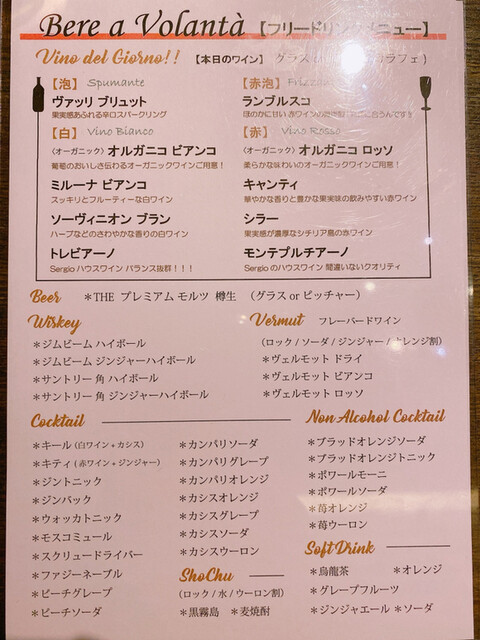 Bere a Volantà【フリードリンクメニュー】
Vino del Giorno!! 【本日のワイン】 グラス
【泡】 Spumante
ヴァッリ ブリュット
果実感あふれる辛口スパークリング
【赤泡】
ランブルスコ
ほのかに甘い 赤ワインの
【白】 Vino Bianco
〈オーガニック〉オルガニコ ビアンコ
葡萄のおいしさ伝わるオーガニックワインご用意！
ミルーナ ビアンコ
スッキリとフルーティーな白ワイン
ソーヴィニオン ブラン
ハーブなどのさわやかな香りの白ワイン
トレビアーノ
Sergio ハウスワイン バランス抜群！！！
【赤】 Vino Rosso
〈オーガニック〉オルガニコ ロッソ
柔らかな味わいのオーガニックワインご用意！
キャンティ
華やかな香りと豊かな果実味の飲みやすい赤ワイン
シラー
果実感が濃厚なシチリア島の赤ワイン
モンテプルチアーノ
Sergio のハウスワイン 間違いないクオリティ
Beer ＊THE プレミアム モルツ 樽生 （グラス or ピッチャー）
Wiskey
＊ジムビーム ハイボール
＊ジムビーム ジンジャーハイボール
＊サントリー 角 ハイボール
＊サントリー 角 ジンジャーハイボール
Vermut フレーバードワイン
（ロック / ソーダ / ジンジャー / オレンジ割）
＊ヴェルモット ドライ
＊ヴェルモット ビアンコ
＊ヴェルモット ロッソ
Cocktail
＊キール（白ワイン + カシス）
＊キティ（赤ワイン + ジンジャー）
＊ジントニック
＊ジンバック
＊ウォッカトニック
＊モスコミュール
＊スクリュードライバー
＊ファジーネーブル
＊ピーチグレープ
＊ピーチソーダ
＊カンパリソーダ
＊カンパリグレープ
＊カンパリオレンジ
＊カシスオレンジ
＊カシスグレープ
＊カシスソーダ
＊カシスウーロン
ShoChu
（ロック / 水 / ウーロン割）
＊黒霧島 ＊麦焼酎
Non Alcohol Cocktail
＊ブラッドオレンジソーダ
＊ブラッドオレンジトニック
＊ポワールモーニ
＊ポワールソーダ
＊苺オレンジ
＊苺ウーロン
Soft Drink
＊烏龍茶 ＊オレンジ
＊グレープフルーツ
＊ジンジャエール ＊ソーダ